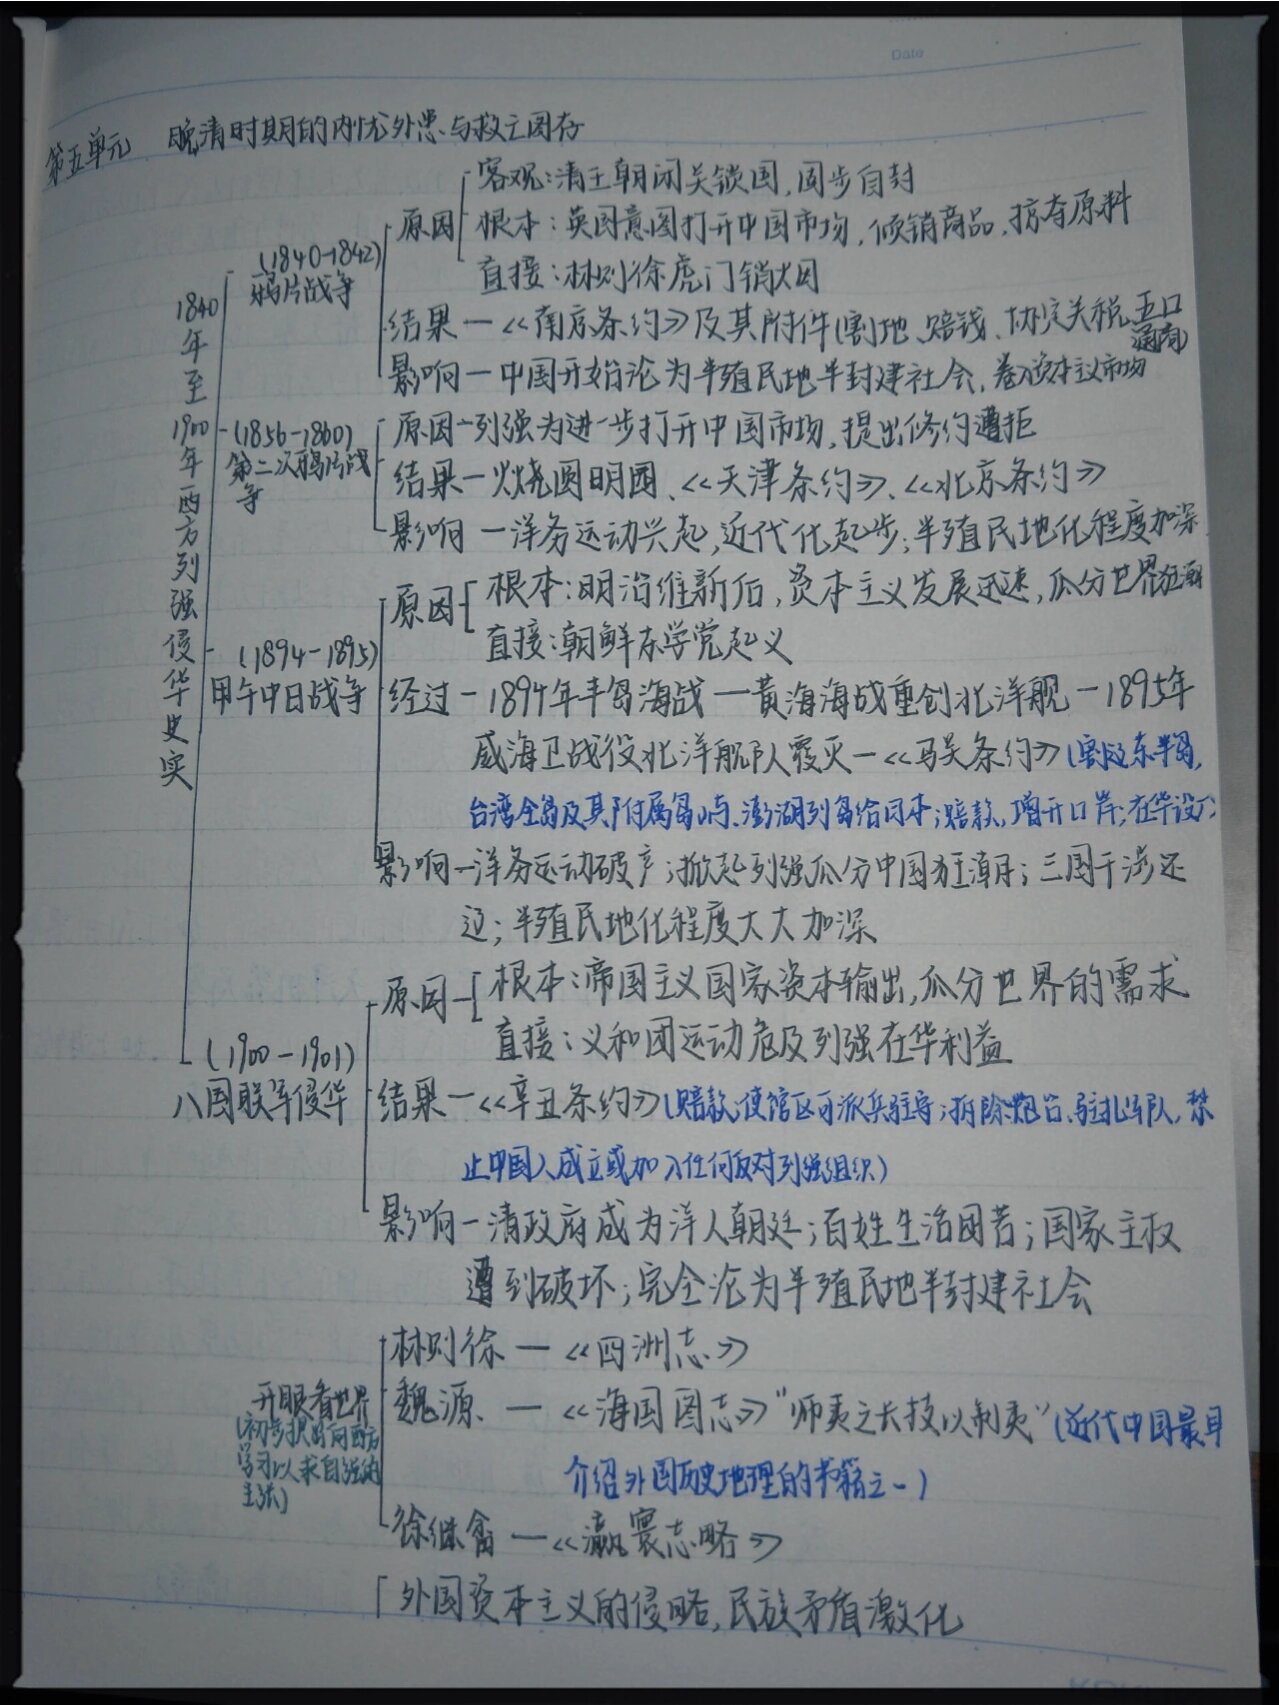 Date
第五单元 晚清时期的内忧外患与救亡图存
客观:清王朝闭关锁国,固步自封
原因 根本:英国意图打开中国市场,倾销商品,掠夺原料
(1840-1842)
鸦片战争
直接:林则徐虎门销烟
结果—《南京条约》及其附件(割地、赔钱、协定关税、五口
通商)
影响—中国开始沦为半殖民地半封建社会,卷入资本主义市场
1840年至1900年西方列强侵华史实
(1856-1860)
第二次鸦片战
争
原因—列强为进一步打开中国市场,提出修约遭拒
结果—火烧圆明园、《天津条约》、《北京条约》
影响—洋务运动兴起,近代化起步;半殖民地化程度加深
(1894-1895)
甲午中日战争
原因 根本:明治维新后,资本主义发展迅速,瓜分世界狂潮
直接:朝鲜东学党起义
经过—1894年丰岛海战—黄海海战重创北洋舰—1895年
威海卫战役北洋舰队覆灭—《马关条约》(割辽东半岛,
台湾全岛及其附属岛屿、澎湖列岛给日本;赔款,增开口岸;在华设厂)
影响—洋务运动破产;掀起列强瓜分中国狂潮;三国干涉还
辽;半殖民地化程度大大加深
(1900-1901)
八国联军侵华
原因 根本:帝国主义国家资本输出,瓜分世界的需求
直接:义和团运动危及列强在华利益
结果—《辛丑条约》(赔款;使馆区可派兵驻守;拆除炮台、驻扎军队,禁
止中国人成立或加入任何反对列强组织)
影响—清政府成为洋人朝廷;百姓生活困苦;国家主权
遭到破坏;完全沦为半殖民地半封建社会
开眼看世界
(初步探寻向西方
学习以求自强的
主张)
林则徐—《四洲志》
魏源—《海国图志》"师夷之长技以制夷"(近代中国最早
介绍外国历史地理的书籍之一)
徐继畬—《瀛寰志略》
外国资本主义的侵略,民族矛盾激化